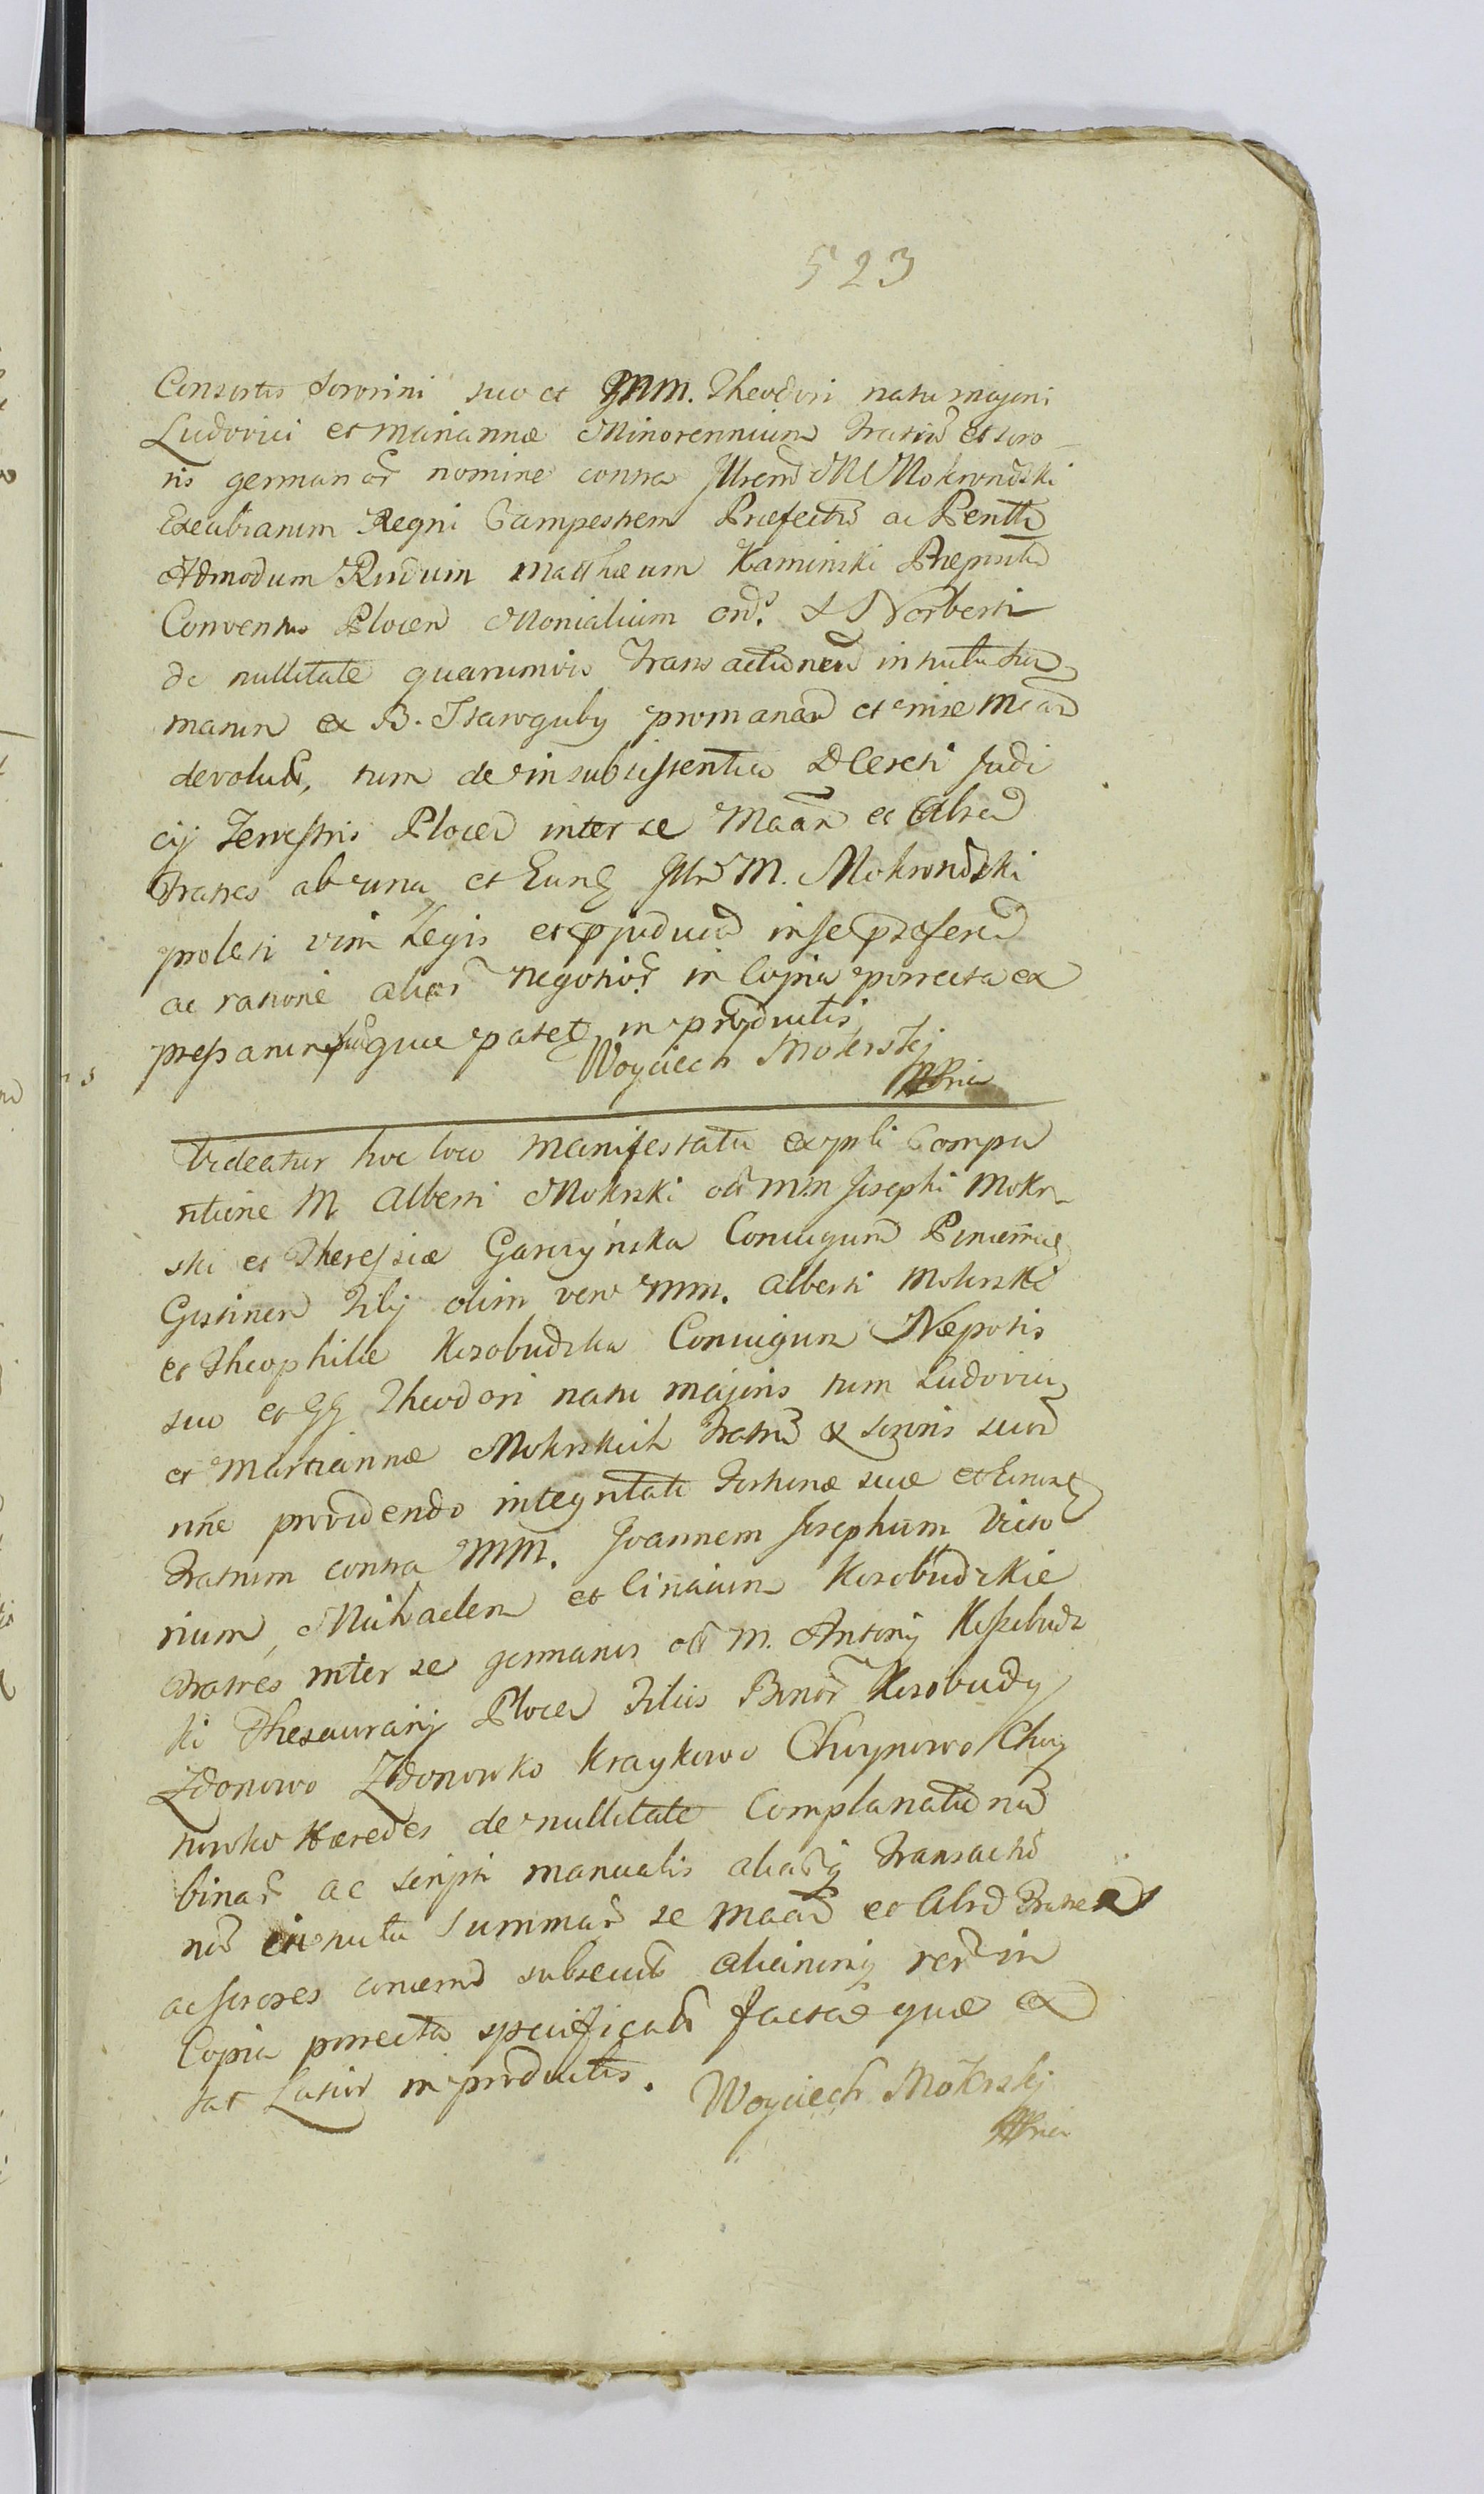 523
Consortis Sororini suo et GMM. Theodori natu majoris
Ludovici et Mariannæ Minorennium Fratrū et soro
ris germanoȓ nomine contra Illrem M Mokronoski
Excubiarum Regni Campestrem Præfectū ac
Admodum Rndum Matthæum Kaminski Præpositū
Conventus Plocen Monialium ord. S Norberti
de nullitate quarumvis Transactionum intuitu
marum ex B. Staroguby promanan et
devolut, tum de insubsistentia Decreti Judi
cij Terrestris Plocen inter se Maan et Alios
Fratres ab una et Eund Illr M. Mokronoski
prolati vim Legis et pjudicia in se pseferen
ac ratione alioȓ negotioȓ in Copia porrecta ex
pressarum quæ patet in productis
Woyciech Mokrskj
mpria
Videatur hoc loco manifestatio ex psli Compa
ritione M Alberti Mokrski oli MM Josephi Mokr
ski et Theresiæ Garczyńska Conjugum
Gistinen Filij olim vero MM. Alberti Mokrski
et Theophilæ Kosobudzka Conjugum Nepotis
suo et GG Theodori natu majoris tum Ludovici
et Mariannæ Mokrskich Fratrū & sororis suoȓ
nñe providendo integritati Fortunæ suæ et Eorund
Fratrum contra MM. Joannem Josephum Victo
rium Michaelem et Kosobudzkie
Fratres inter se germanos oli M. Antonij Kossobudz
ki Thesaurarij Plocen Filios Bonoȓ Kosobudy
Zdonowo Zdonowko Kraykowo Chuynowo Chuy
nowko Hæredes de nullitate Complanationū
binaȓ ac scripti manualis aliaȓq Transactio
nū intuitu Summaȓ se Maan et Alios Fratres
ac sorores concernen subsecut aliarumq rerȓ in
Copia porrecta specificat facta quæ ex
tat Latior in productis. Woyciech Mokrskj
mpria